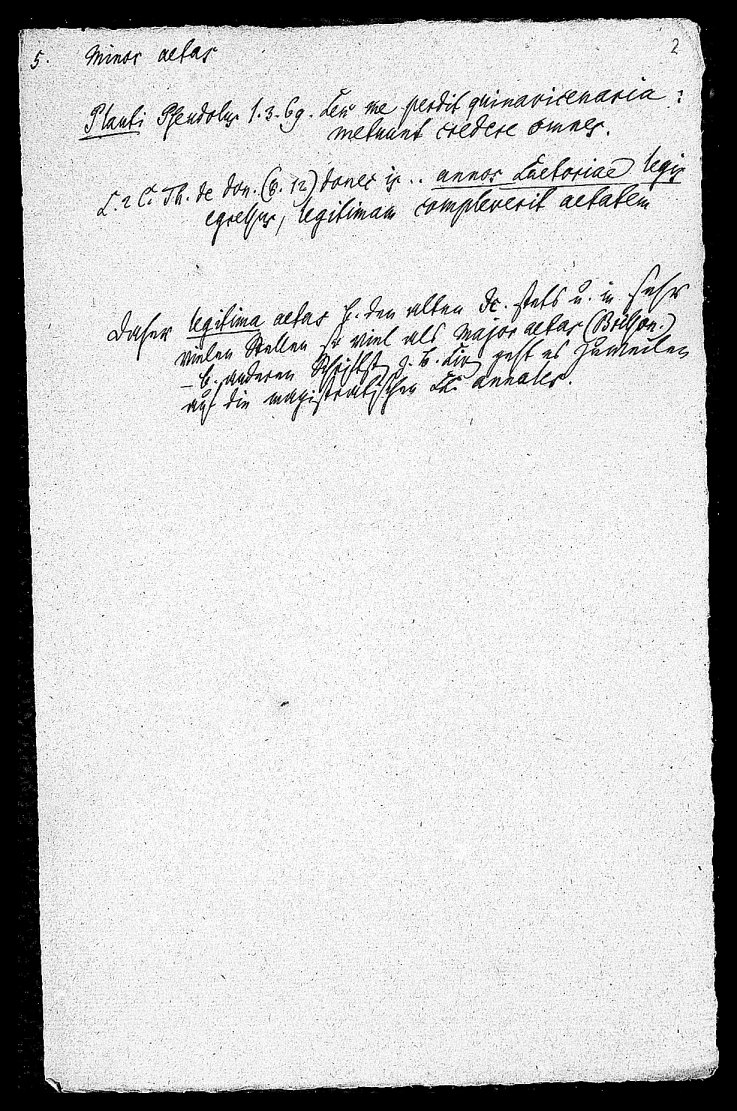 5. Minor aetas 2
Plauti Pseudolus 1. 3. 69. Lex me perdit quinavicenaria :
metuunt credere omnes.
L. 2 C. Th. de don. (8. 12) donec is .. annos Laetoriae legis
egressus, legitimam compleverit aetatem
Daher legitima aetas b. den alten Jc. stets u. in sehr
vielen Stellen so viel als major aetas (Brisson.)
– b. anderen Schriftst. z. B. Liv. geht es zuweilen
auf die magistratischen LL. annales.